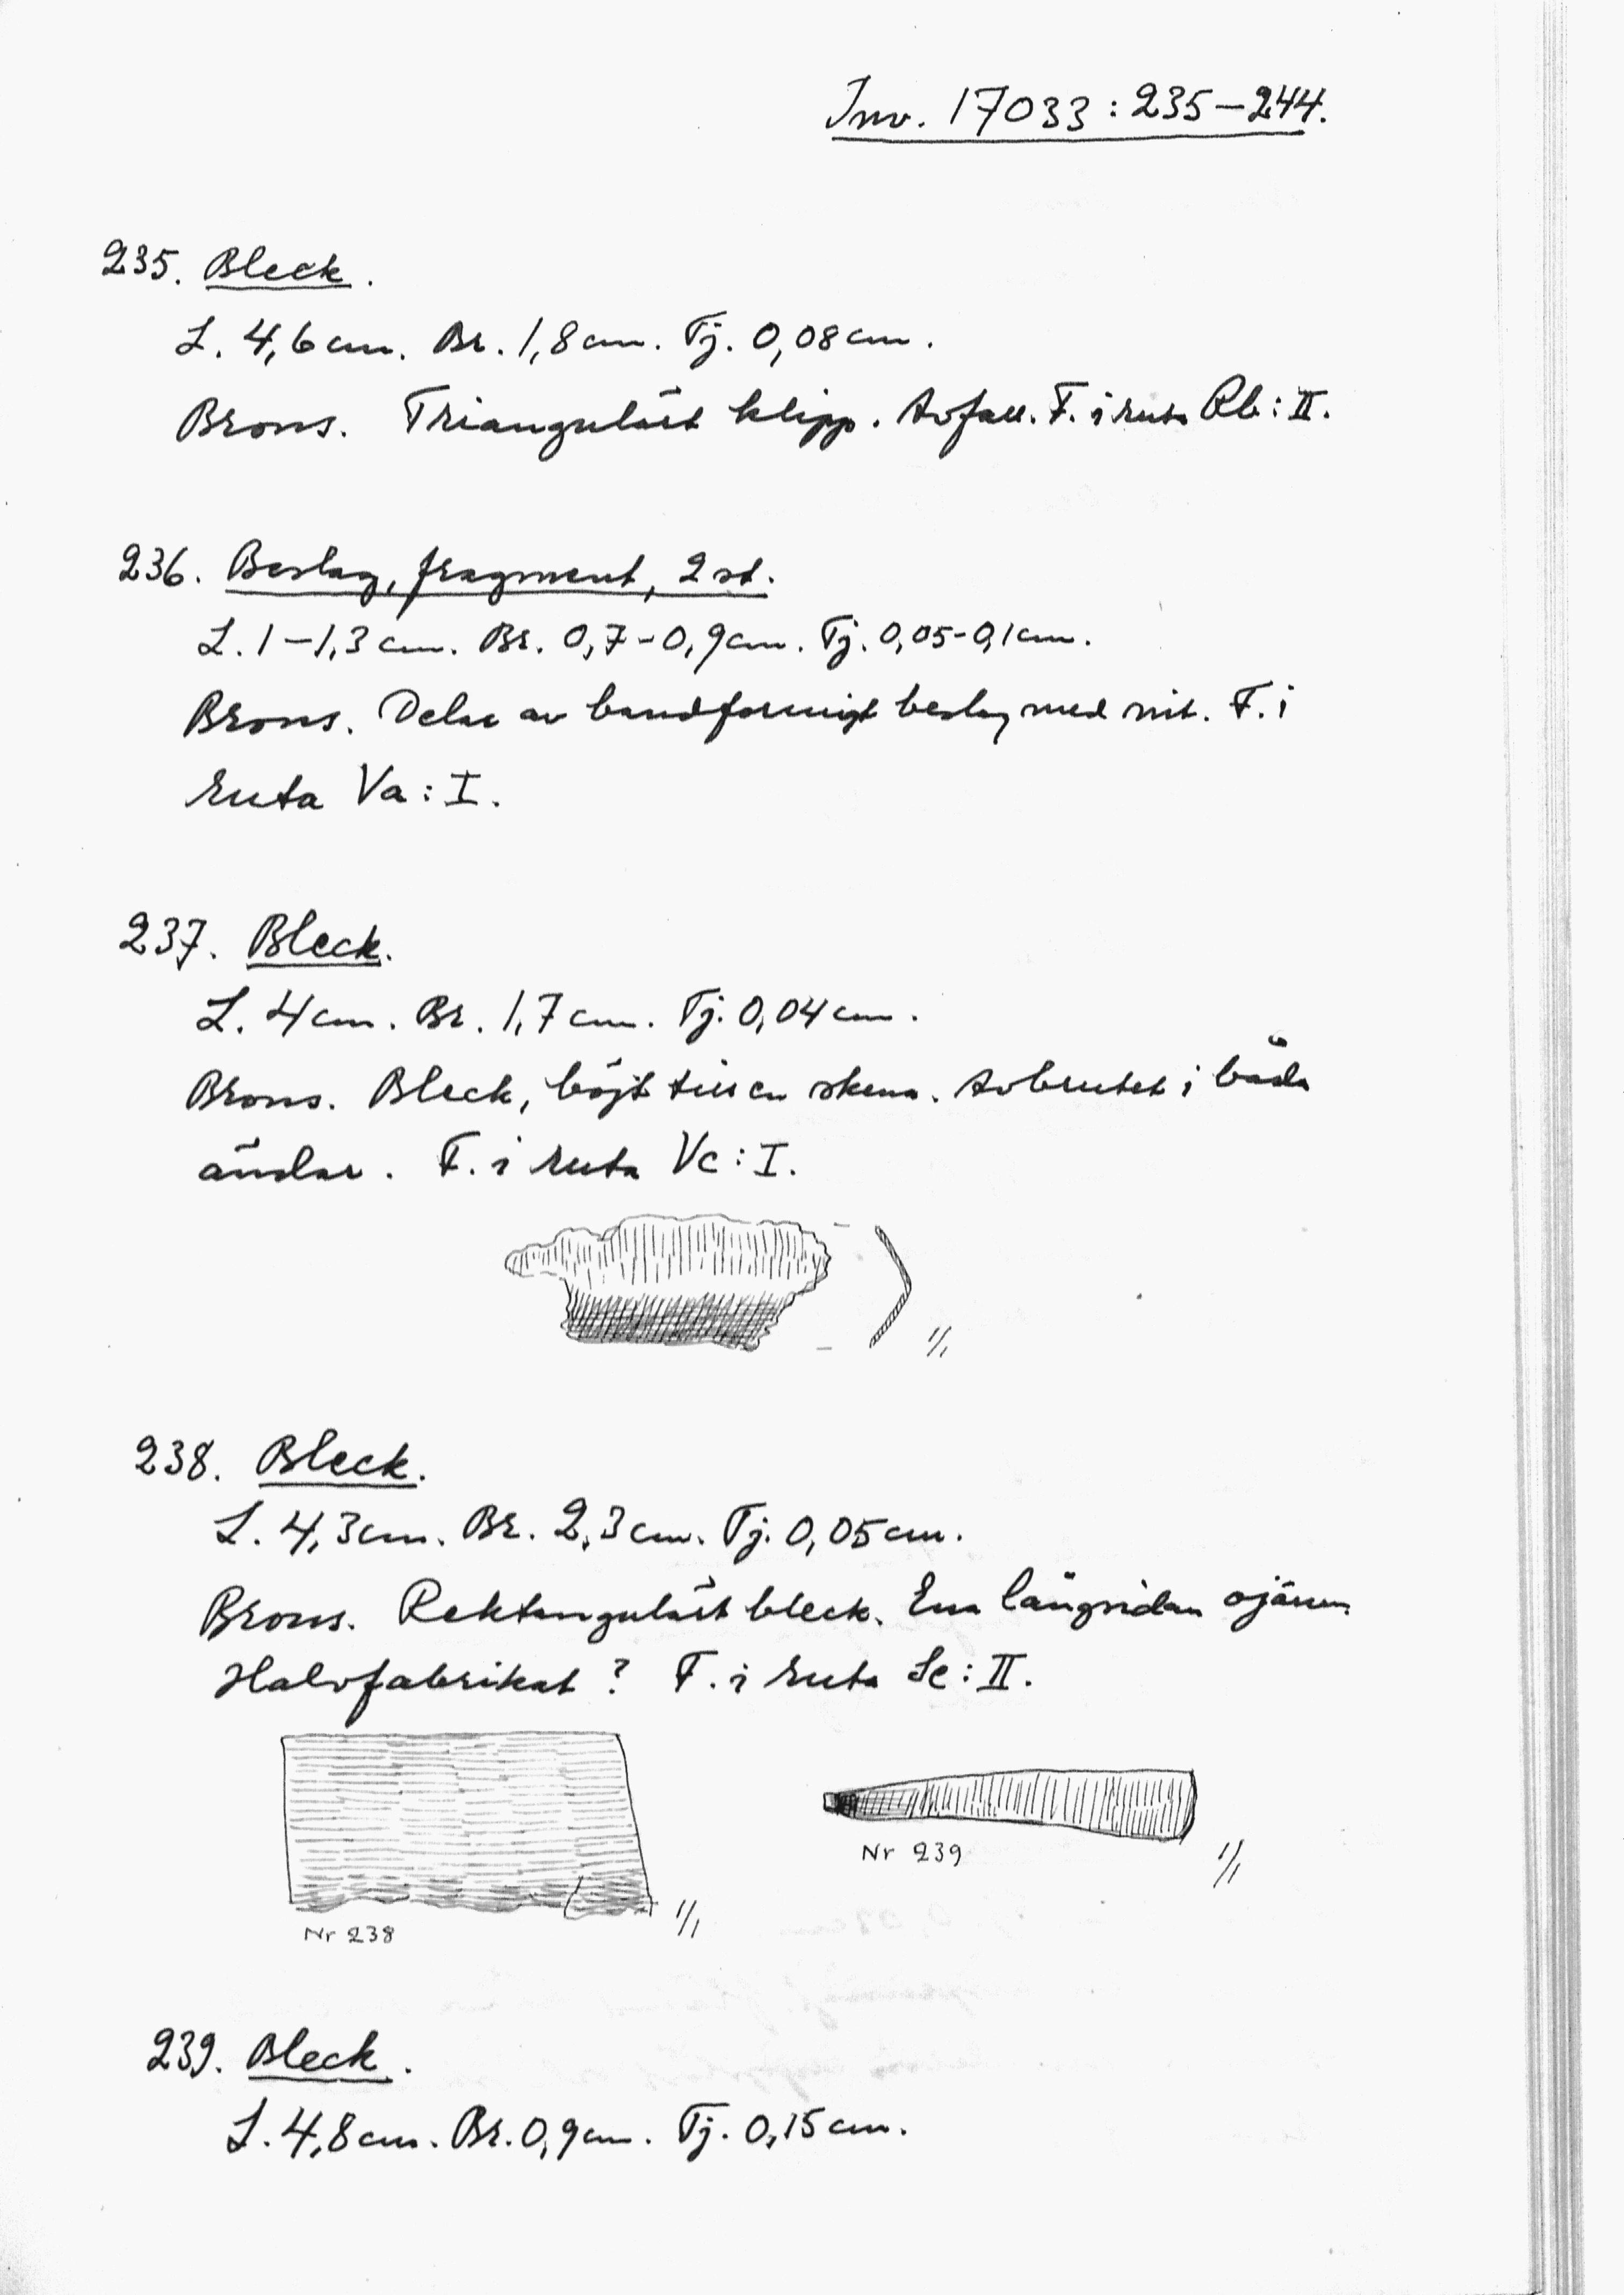 Inv. 17033:235–244.
235. Bleck.
L. 4,6 cm. Br. 1,8 cm. Tj. 0,08 cm.
Brons. Triangulärt klipp. Avfall. F. i ruta Rb:II.
236. Beslag, fragment, 2 st.
L. 1–1,3 cm. Br. 0,7–0,9 cm. Tj. 0,05–0,1 cm.
Brons. Delar av bandformigt beslag med nit. F. i
ruta Va:I.
237. Bleck.
L. 4 cm. Br. 1,7 cm. Tj. 0,04 cm.
Brons. Bleck, böjt till en skena. Avbrutet i båda
ändar. F. i ruta Vc:I.
1/1
238. Bleck.
L. 4,3 cm. Br. 2,3 cm. Tj. 0,05 cm.
Brons. Rektangulärt bleck. Ena långsidan ojämn.
Halvfabrikat? F. i ruta :II.
Nr 239
1/1
Nr 238
1/1
239. Bleck.
L. 4,8 cm. Br. 0,9 cm. Tj. 0,15 cm.